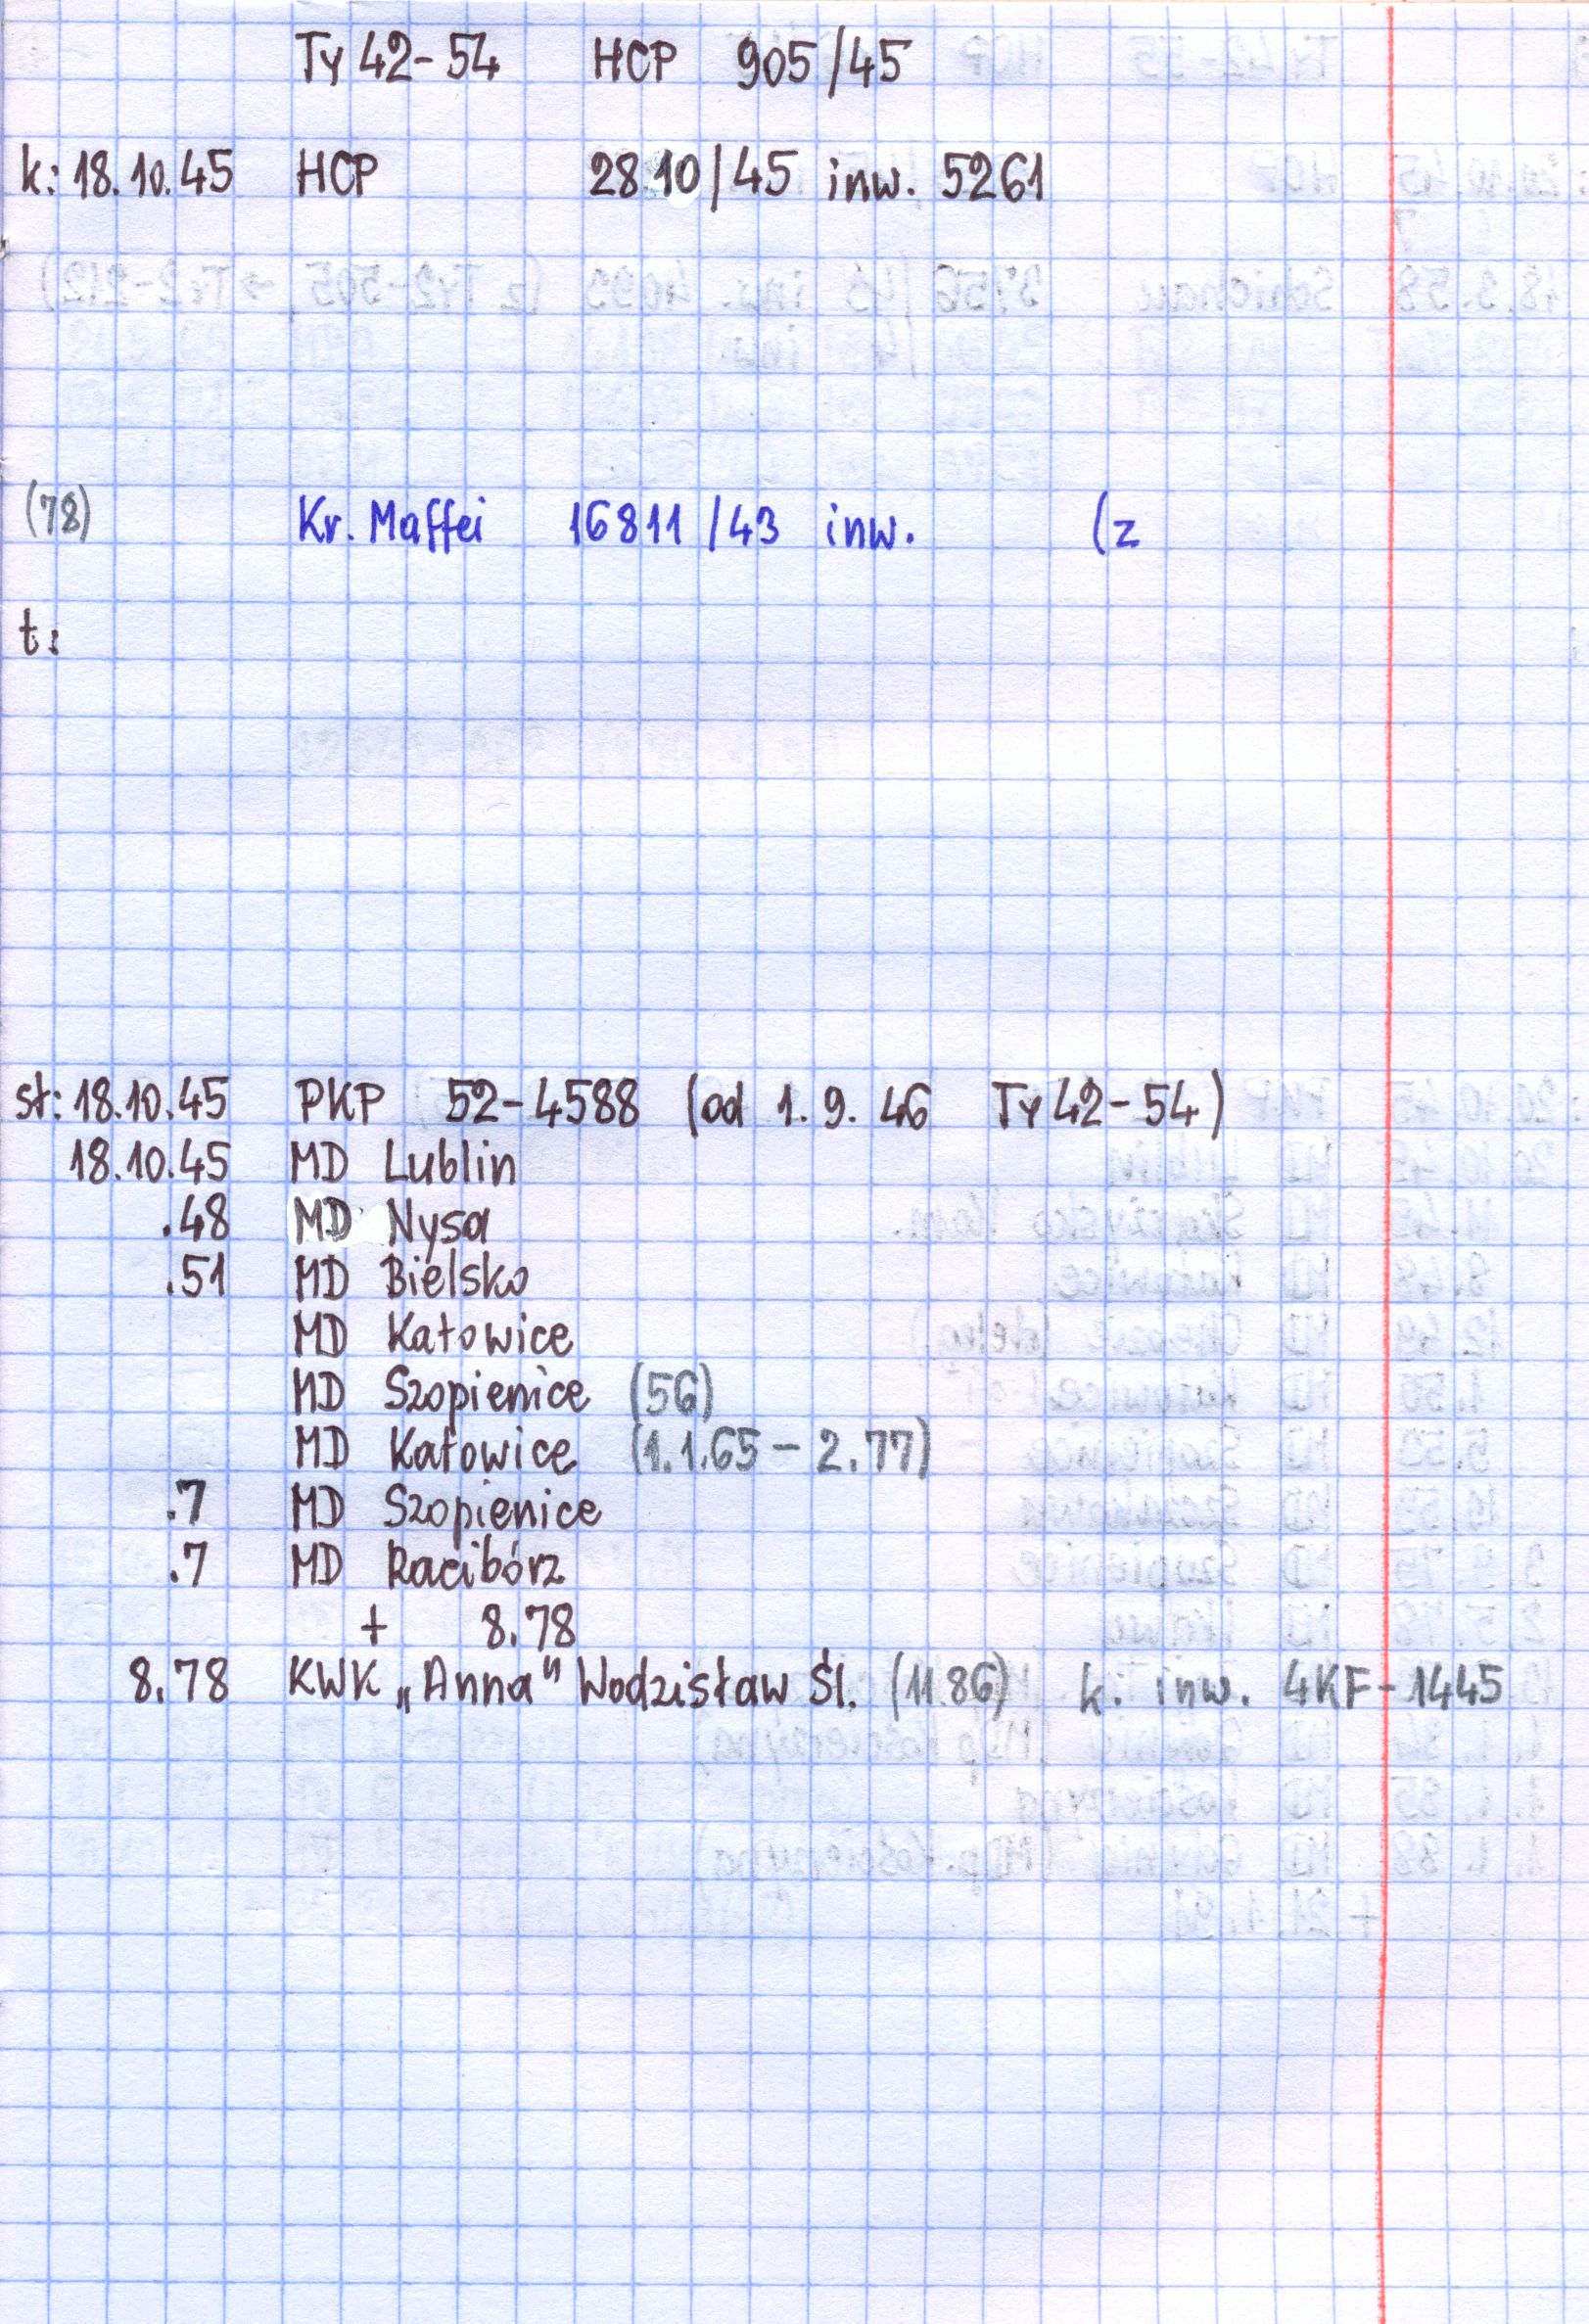 Ty 42-54 HCP 905/45
k: 18.10.45 HCP 2810/45 inw. 5261
(78) Kr. Maffei 16811/43 inw. (z
t:
st: 18.10.45 PKP 52-4588 (od 1.9.46 Ty 42-54)
18.10.45 MD Lublin
.48 MD Nysa
.51 MD Bielsko
MD Katowice
MD Szopienice (56)
MD Katowice (1.1.65 - 2.77)
.7 MD Szopienice
.7 MD Racibórz
+ 8.78
8.78 KWK „Anna" Wodzisław Śl. (11.86) k. inw. 4KF-1445